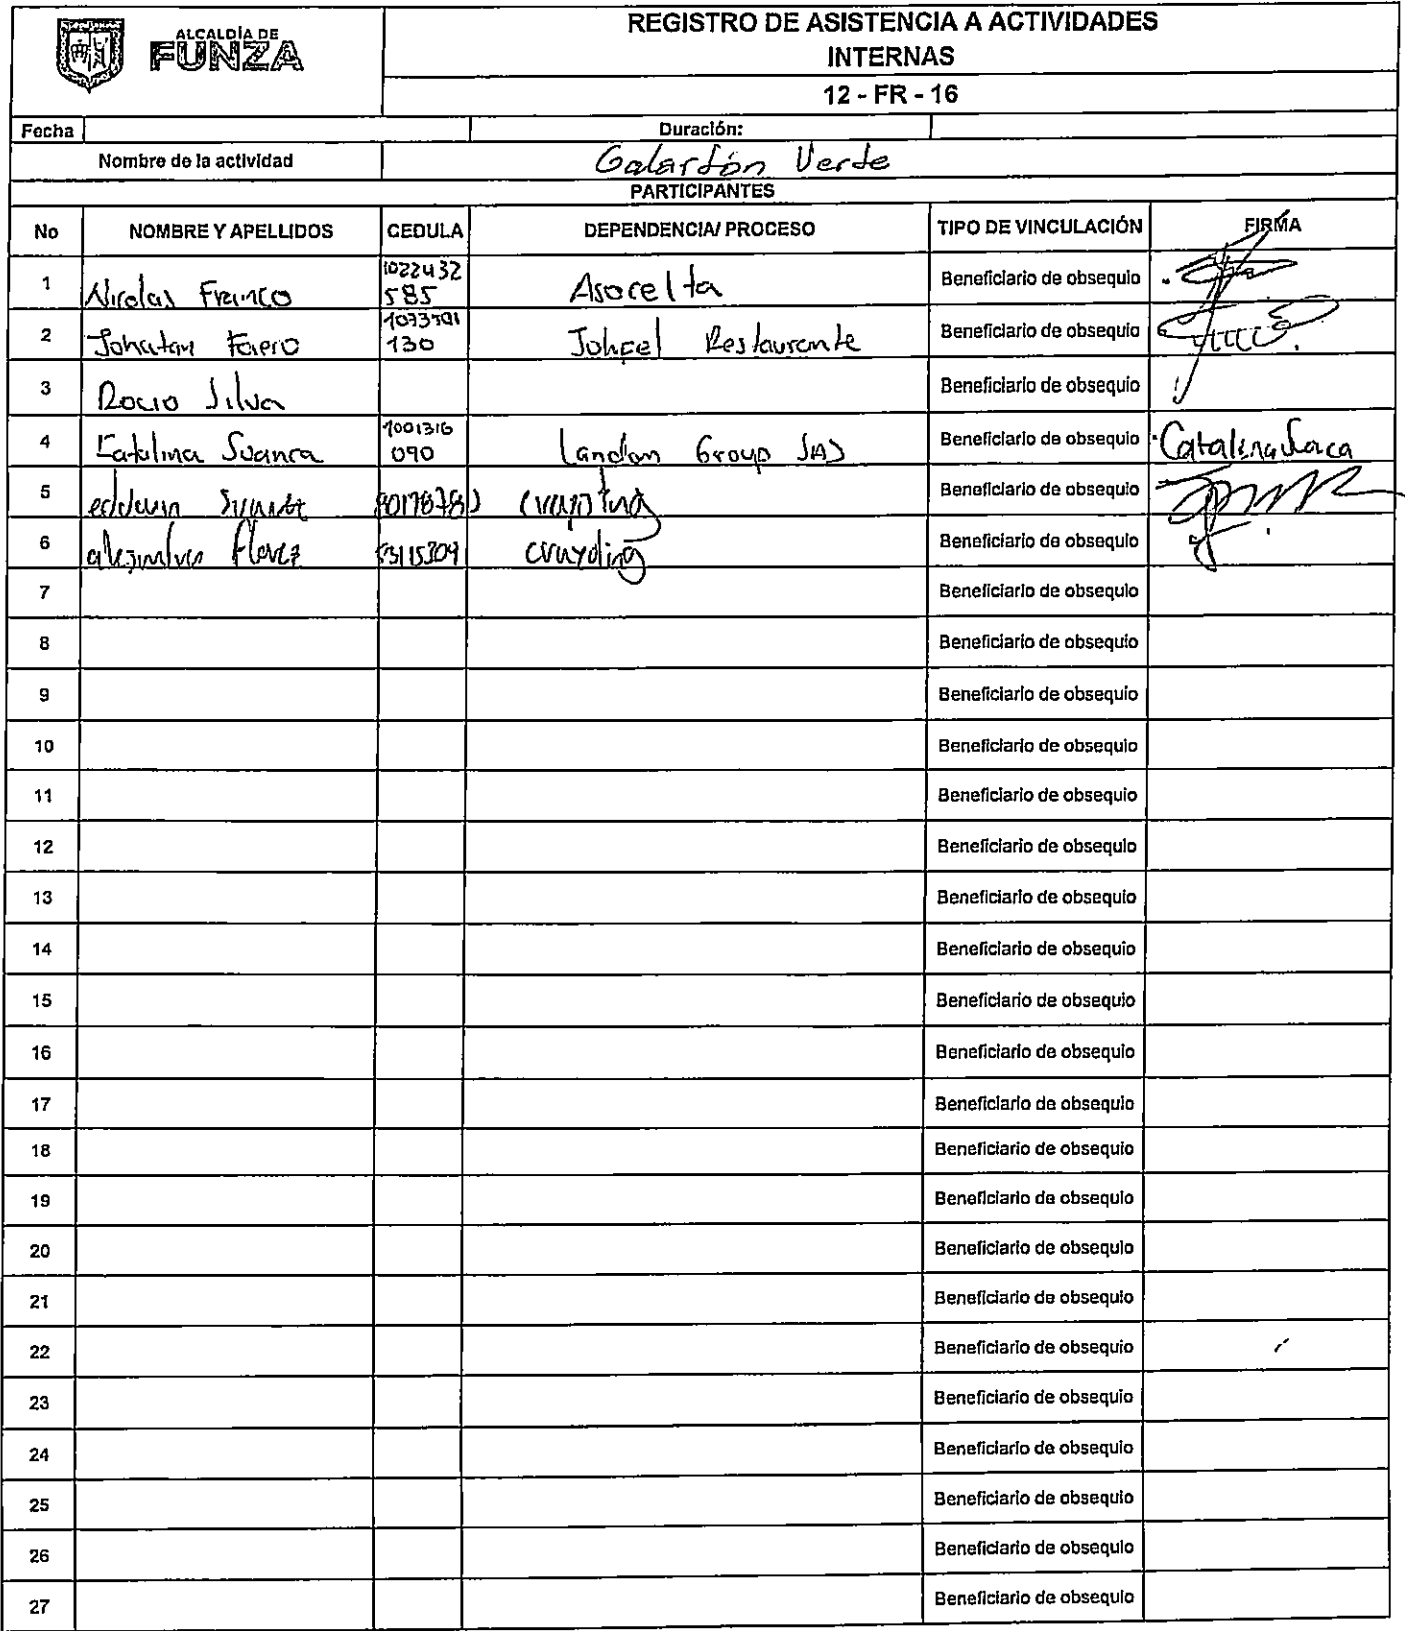 ALCALDÍA DE
FUNZA
REGISTRO DE ASISTENCIA A ACTIVIDADES
INTERNAS
12 - FR - 16
Fecha Duración:
Nombre de la actividad Galardón Verde
PARTICIPANTES
No NOMBRE Y APELLIDOS CEDULA DEPENDENCIA/ PROCESO TIPO DE VINCULACIÓN FIRMA
1 Nicolas Franco 1022432 585 Asocelta Beneficiario de obsequio
2 Johatan 130 Restaurante Beneficiario de obsequio
3 Rocio Silva Beneficiario de obsequio
4 Catalina 1001316 090 Landon Group SAS Beneficiario de obsequio Catalina
5 Beneficiario de obsequio
6 Florez Beneficiario de obsequio
7 Beneficiario de obsequio
8 Beneficiario de obsequio
9 Beneficiario de obsequio
10 Beneficiario de obsequio
11 Beneficiario de obsequio
12 Beneficiario de obsequio
13 Beneficiario de obsequio
14 Beneficiario de obsequio
15 Beneficiario de obsequio
16 Beneficiario de obsequio
17 Beneficiario de obsequio
18 Beneficiario de obsequio
19 Beneficiario de obsequio
20 Beneficiario de obsequio
21 Beneficiario de obsequio
22 Beneficiario de obsequio
23 Beneficiario de obsequio
24 Beneficiario de obsequio
25 Beneficiario de obsequio
26 Beneficiario de obsequio
27 Beneficiario de obsequio